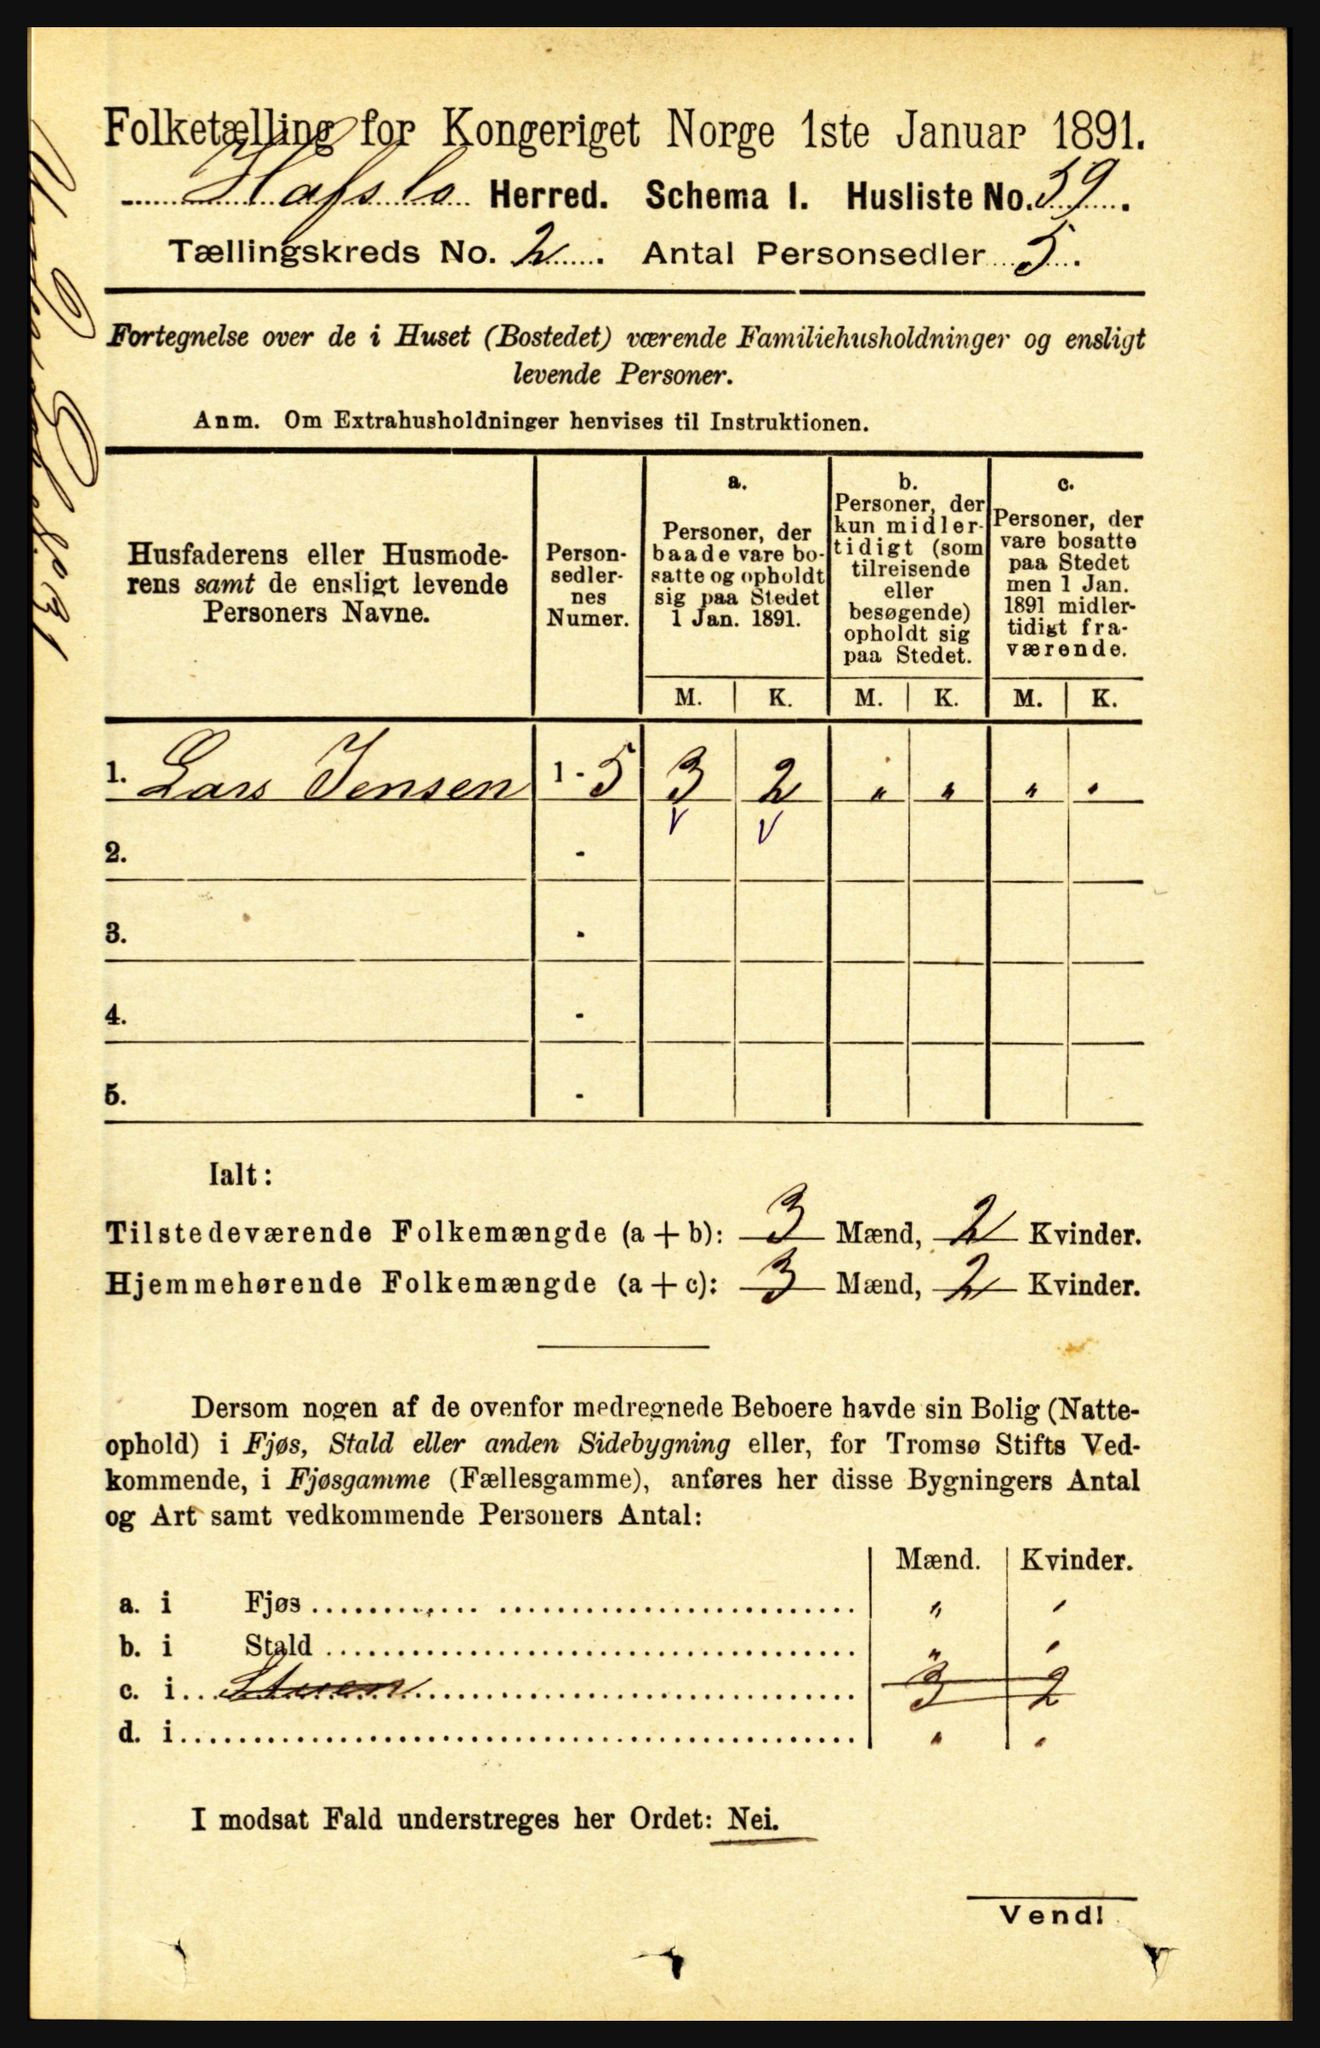 Folketælling for Kongeriget Norge 1ste Januar 1891.
Hafslo Herred. Schema I. Husliste No. 39.
Tællingskreds No. 2. Antal Personsedler 5.
Fortegnelse over de i Huset (Bostedet) værende Familiehusholdninger og ensligt
levende Personer.
Anm. Om Extrahusholdninger henvises til Instruktionen.
Husfaderens eller Husmode-
rens samt de ensligt levende
Personers Navne.
Person-
sedler-
nes
Numer.
a.
Personer, der
baade vare bo-
satte og opholdt
sig paa Stedet
1 Jan. 1891.
b.
Personer, der
kun midler-
tidigt (som
tilreisende
eller
besøgende)
opholdt sig
paa Stedet.
c.
Personer, der
vare bosatte
paa Stedet
men 1 Jan.
1891 midler-
tidigt fra-
værende.
M. K. M. K. M. K.
1. Lars Jensen 1 - 5 3 2 „ „ „ „
2. -
3. -
4. -
5. -
Ialt:
Tilstedeværende Folkemængde (a + b): 3 Mænd, 2 Kvinder.
Hjemmehørende Folkemængde (a + c): 3 Mænd, 2 Kvinder.
Dersom nogen af de ovenfor medregnede Beboere havde sin Bolig (Natte-
ophold) i Fjøs, Stald eller anden Sidebygning eller, for Tromsø Stifts Ved-
kommende, i Fjøsgamme (Fællesgamme), anføres her disse Bygningers Antal
og Art samt vedkommende Personers Antal:
Mænd. Kvinder.
a. i Fjøs „ „
b. i Stald „ „
c. i 3 2
d. i „ „
I modsat Fald understreges her Ordet: Nei.
Vend!